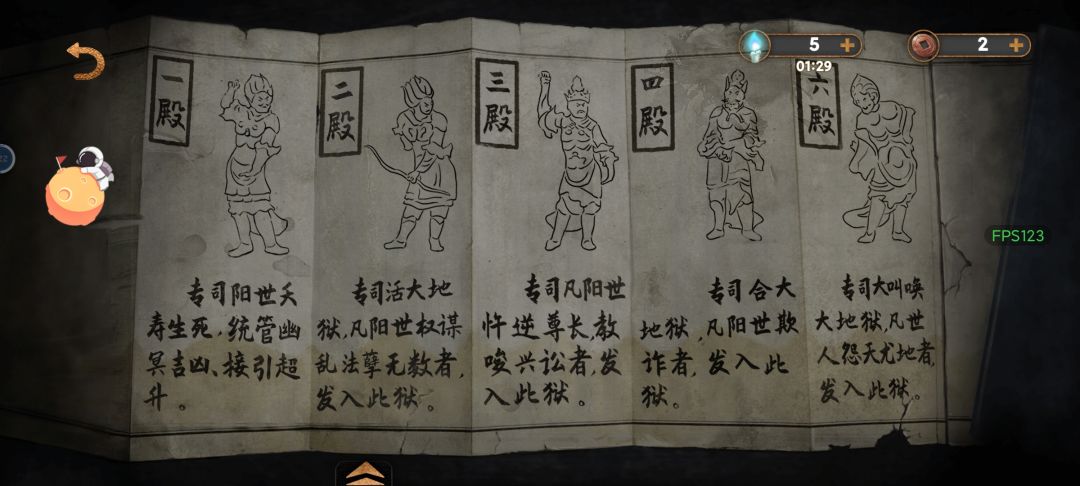 5
2
01:29
FPS123
一殿
专司阳世夭
寿生死，统管幽
冥吉凶、接引超
升。
二殿
专司活大地
狱，凡阳世权谋
乱法孽无数者，
发入此狱。
三殿
专司凡阳世
忤逆尊长，教
唆兴讼者，发
入此狱。
四殿
专司合大
地狱，凡阳世欺
诈者，发入此
狱。
六殿
专司大叫唤
大地狱，凡世
人怨天尤地者，
发入此狱。